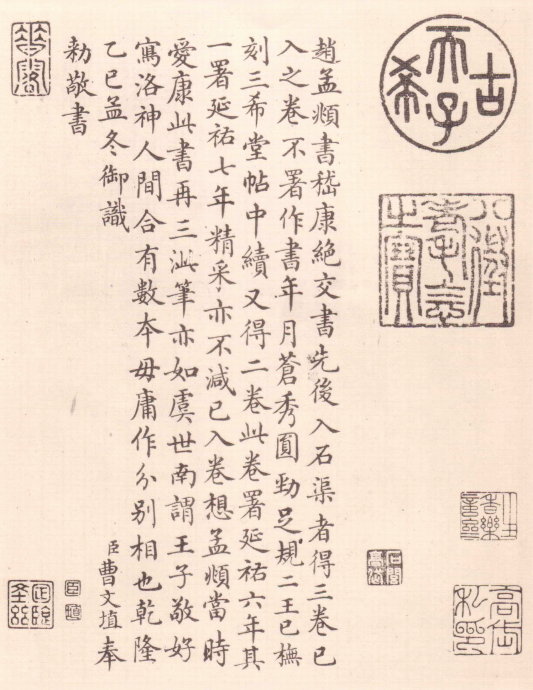 古希天子
八徵耄念之寶
趙孟頫書嵇康絶交書先後入石渠者得三卷已
入之卷不署作書年月蒼秀圓勁足規二王已橅
刻三希堂帖中續又得二卷此卷署延祐六年其
一署延祐七年精采亦不減已入卷想孟頫當時
愛康此書再三泚筆亦如虞世南謂王子敬好
寫洛神人間合有數本毋庸作分別相也乾隆
乙巳孟冬御識
臣曹文埴奉
勅敬書